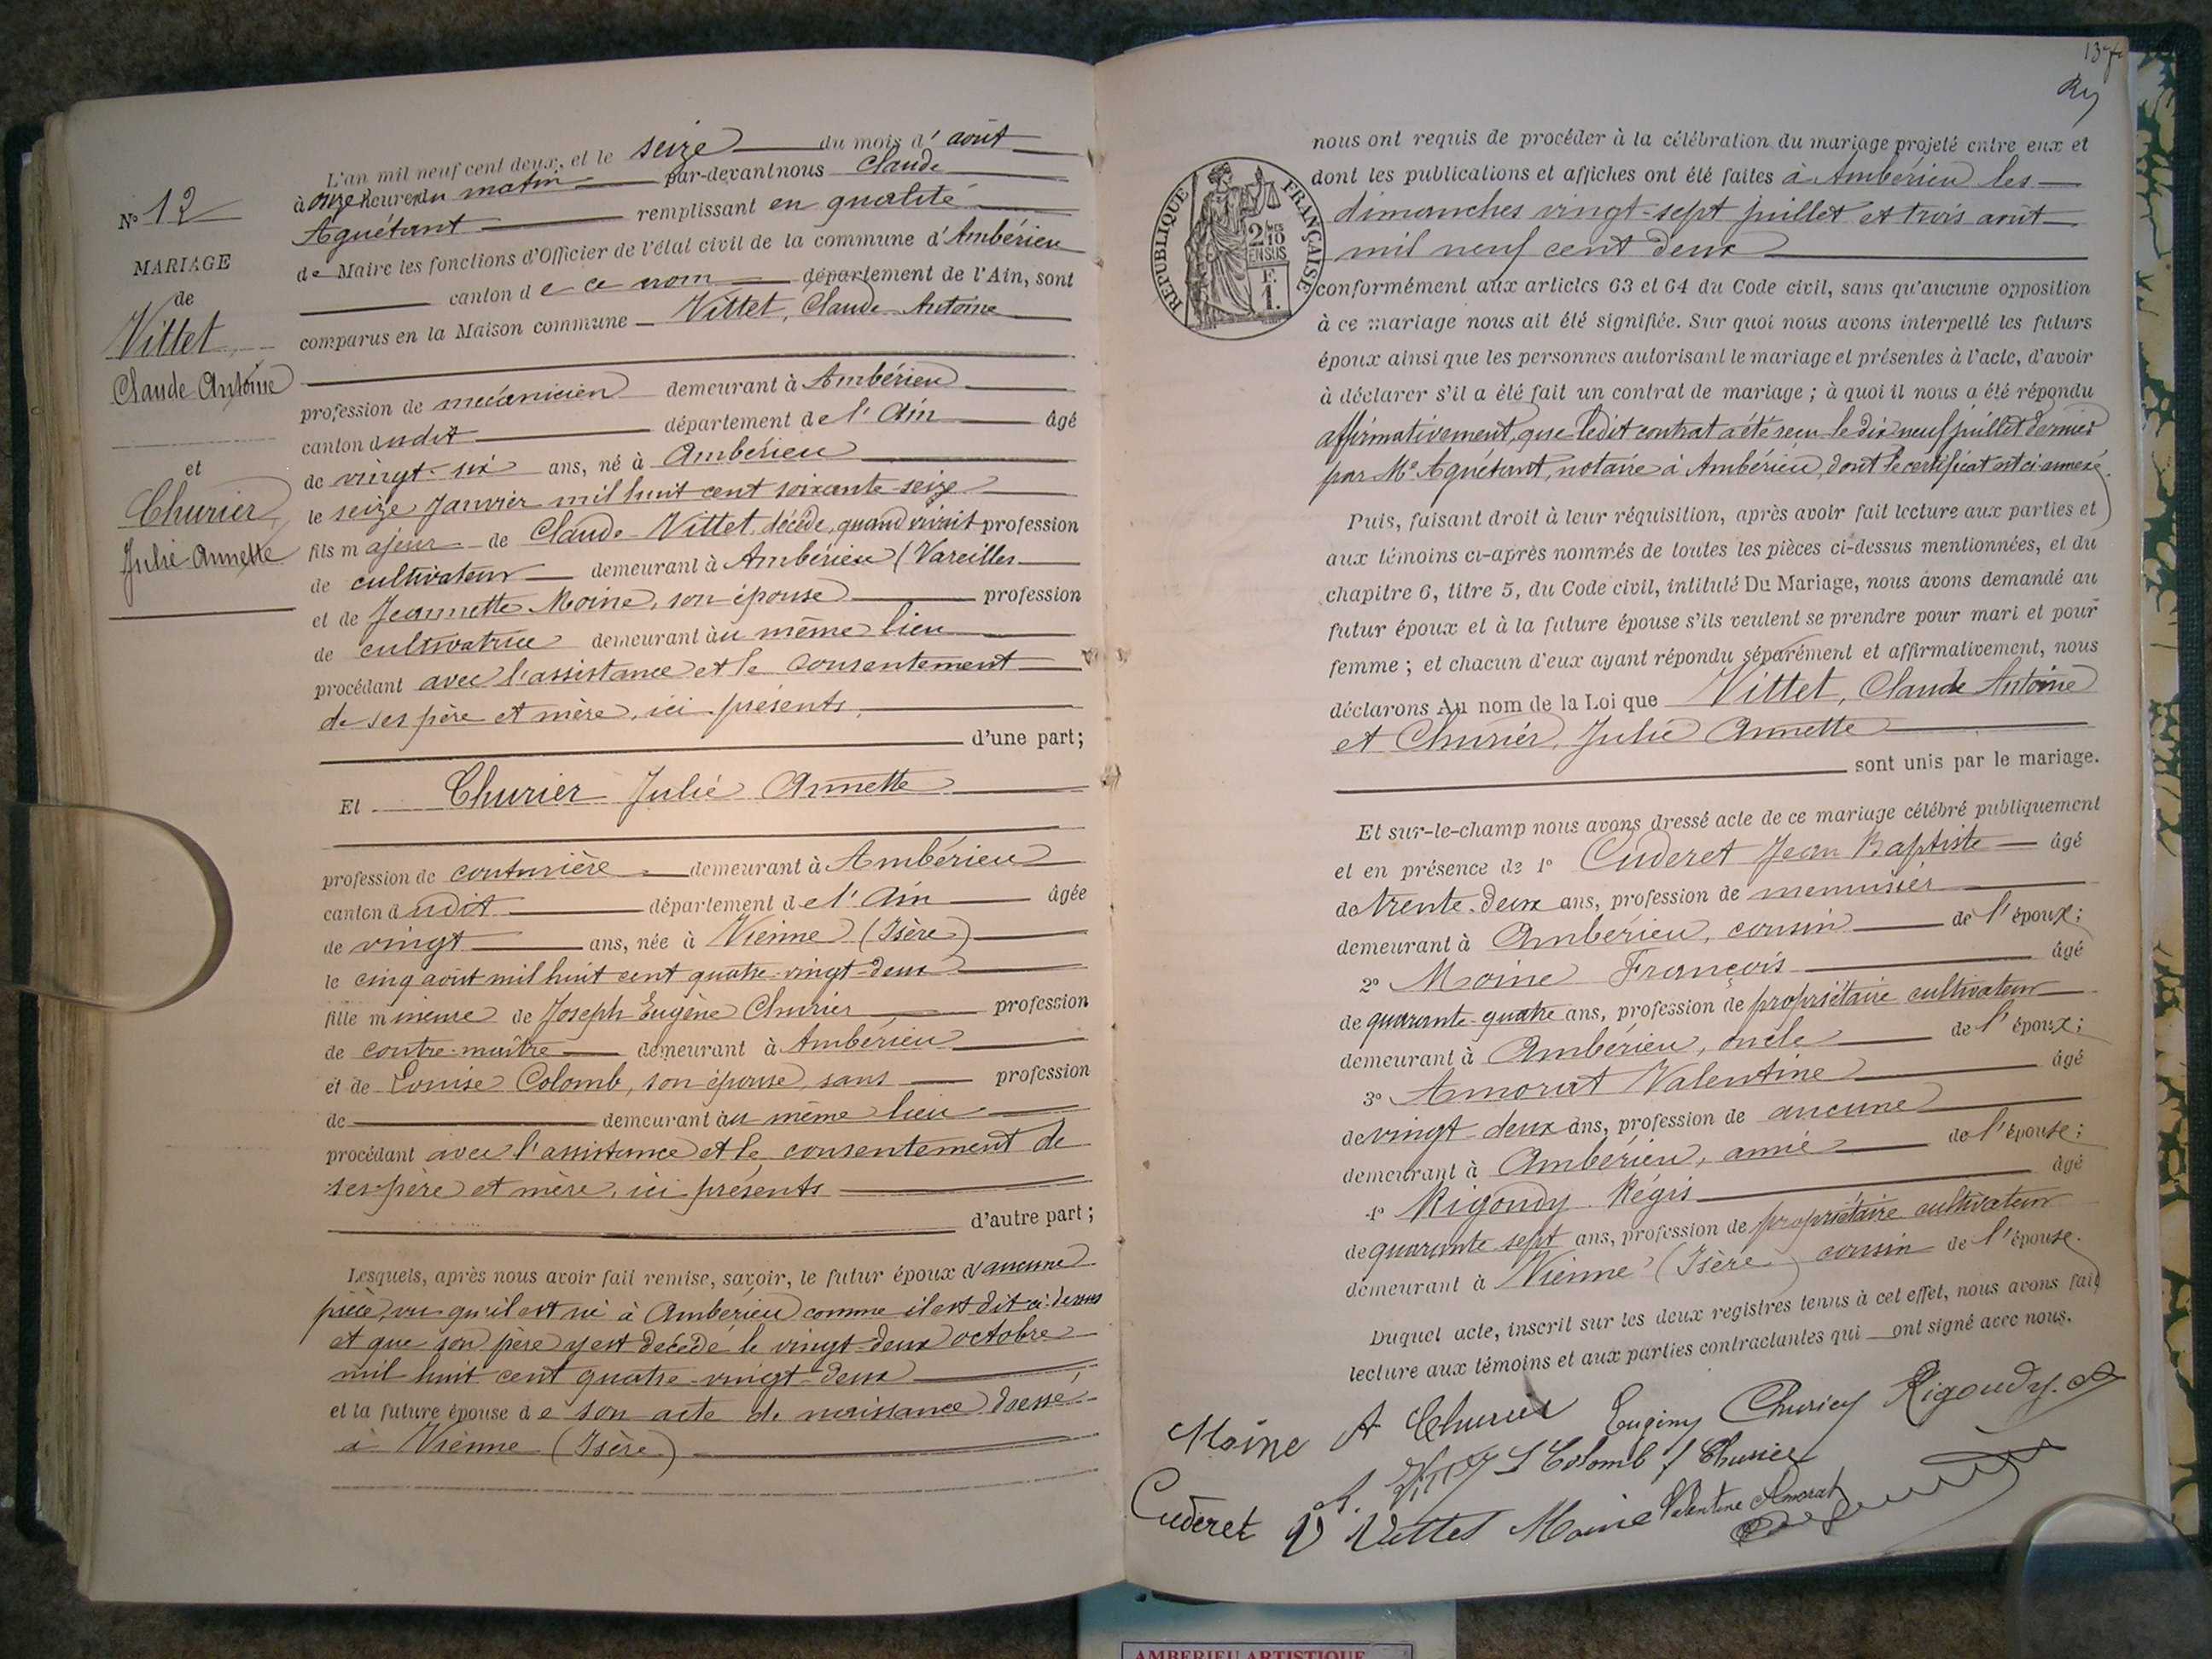 N° 12
MARIAGE
de
Vittet
Claude Antoine
et
Churier
Julie Annette
L'an mil neuf cent deux, et le seize du mois d'août
à onze heures du matin par-devant nous Claude
Aguétant remplissant en qualité
de Maire les fonctions d'Officier de l'état civil de la commune d'Ambérieu
canton de ce nom département de l'Ain, sont
comparus en la Maison commune Vittet, Claude Antoine
profession de mécanicien demeurant à Ambérieu
canton dudit département de l'Ain âgé
de vingt-six ans, né à Ambérieu
le seize Janvier mil huit cent soixante-seize
fils majeur de Claude Vittet, décédé, quand vivait profession
de cultivateur demeurant à Ambérieu (Vareilles
et de Jeannette Moine, son épouse profession
de cultivatrice demeurant au même lieu
procédant avec l'assistance et le consentement
de ses père et mère, ici présents,
d'une part;
Et Churier Julie Annette
profession de couturière demeurant à Ambérieu
canton dudit département de l'Ain âgée
de vingt ans, née à Vienne (Isère)
le cinq août mil huit cent quatre-vingt-deux
fille mineure de Joseph Eugène Churier profession
de contre-maître demeurant à Ambérieu
et de Louise Colomb, son épouse, sans profession
de demeurant au même lieu
procédant avec l'assistance et le consentement de
ses père et mère, ici présents
d'autre part;
Lesquels, après nous avoir fait remise, savoir, le futur époux d'aucune
pièce, vu qu'il est né à Ambérieu comme il est dit ci-dessus
et que son père y est décédé le vingt-deux octobre
mil huit cent quatre-vingt-deux
et la future épouse de son acte de naissance dressé
à Vienne (Isère)
137
nous ont requis de procéder à la célébration du mariage projeté entre eux et
dont les publications et affiches ont été faites à Ambérieu les
dimanches vingt-sept juillet et trois août
mil neuf cent deux
RÉPUBLIQUE FRANÇAISE
2/10
EN SUS
F.
1.
conformément aux articles 63 et 64 du Code civil, sans qu'aucune opposition
à ce mariage nous ait été signifiée. Sur quoi nous avons interpellé les futurs
époux ainsi que les personnes autorisant le mariage et présentes à l'acte, d'avoir
à déclarer s'il a été fait un contrat de mariage; à quoi il nous a été répondu
affirmativement, que ledit contrat a été reçu le dix neuf juillet dernier
par Me Aguétant, notaire à Ambérieu, dont le certificat est ci-annexé.
Puis, faisant droit à leur réquisition, après avoir fait lecture aux parties et
aux témoins ci-après nommés de toutes les pièces ci-dessus mentionnées, et du
chapitre 6, titre 5, du Code civil, intitulé Du Mariage, nous avons demandé au
futur époux et à la future épouse s'ils veulent se prendre pour mari et pour
femme; et chacun d'eux ayant répondu séparément et affirmativement, nous
déclarons Au nom de la Loi que Vittet, Claude Antoine
et Churier, Julie Annette
sont unis par le mariage.
Et sur-le-champ nous avons dressé acte de ce mariage célébré publiquement
et en présence de 1° Cuderet Jean Baptiste âgé
de trente-deux ans, profession de menuisier
demeurant à Ambérieu, cousin de l'époux;
2° Moine François âgé
de quarante-quatre ans, profession de propriétaire cultivateur
demeurant à Ambérieu, oncle de l'époux;
3° Amorat Valentine âgé
de vingt-deux ans, profession de aucune
demeurant à Ambérieu, amie de l'épouse;
4° Rigoudy Régis âgé
de quarante sept ans, profession de propriétaire cultivateur
demeurant à Vienne (Isère) cousin de l'épouse.
Duquel acte, inscrit sur les deux registres tenus à cet effet, nous avons fait
lecture aux témoins et aux parties contractantes qui ont signé avec nous.
Moine A Churier Churier Rigoudy
L Colomb f Churier
Cuderet Vittet Moine Valentine Amorat
AMBERIEU ARTISTIQUE